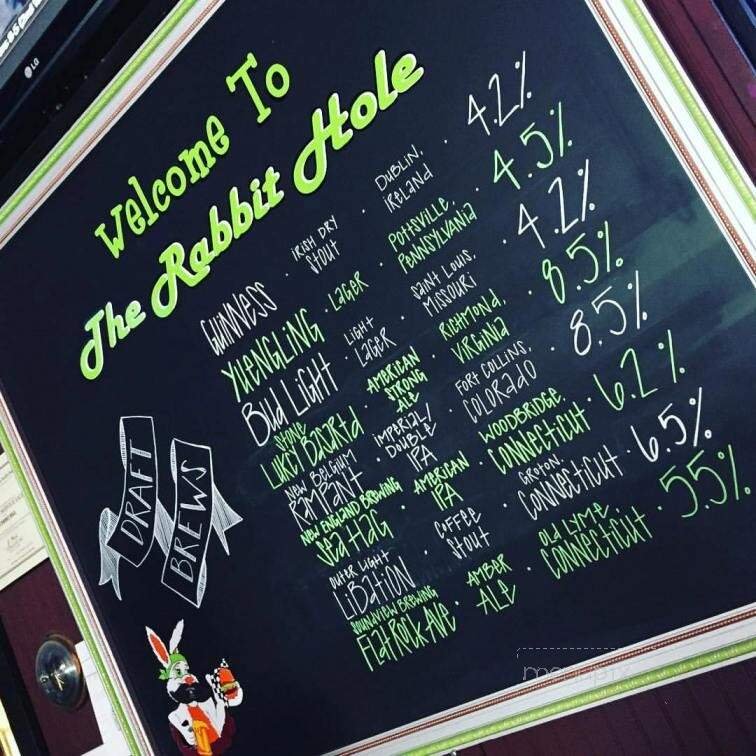 LG
Welcome To
The Rabbit Hole
GUINNESS · IRISH DRY STOUT · DUBLIN, IRELAND · 4.2%
YUENGLING · LAGER · POTTSVILLE, PENNSYLVANIA · 4.5%
BUD LIGHT · LIGHT LAGER · SAINT LOUIS, MISSOURI · 4.2%
STONE LUKCY BASARTD · AMERICAN STRONG ALE · RICHMOND, VIRGINIA · 8.5%
NEW BELGIUM RAMPANT · IMPERIAL/DOUBLE IPA · FORT COLLINS, COLORADO · 8.5%
NEW ENGLAND BREWING SEA HAG · AMERICAN IPA · WOODBRIDGE, CONNECTICUT · 6.2%
OUTER LIGHT LIBATION · COFFEE STOUT · GROTON, CONNECTICUT · 6.5%
SOUNDVIEW BREWING FLAT ROCK AVE · AMBER ALE · OLD LYME, CONNECTICUT · 5.5%
DRAFT
BREWS